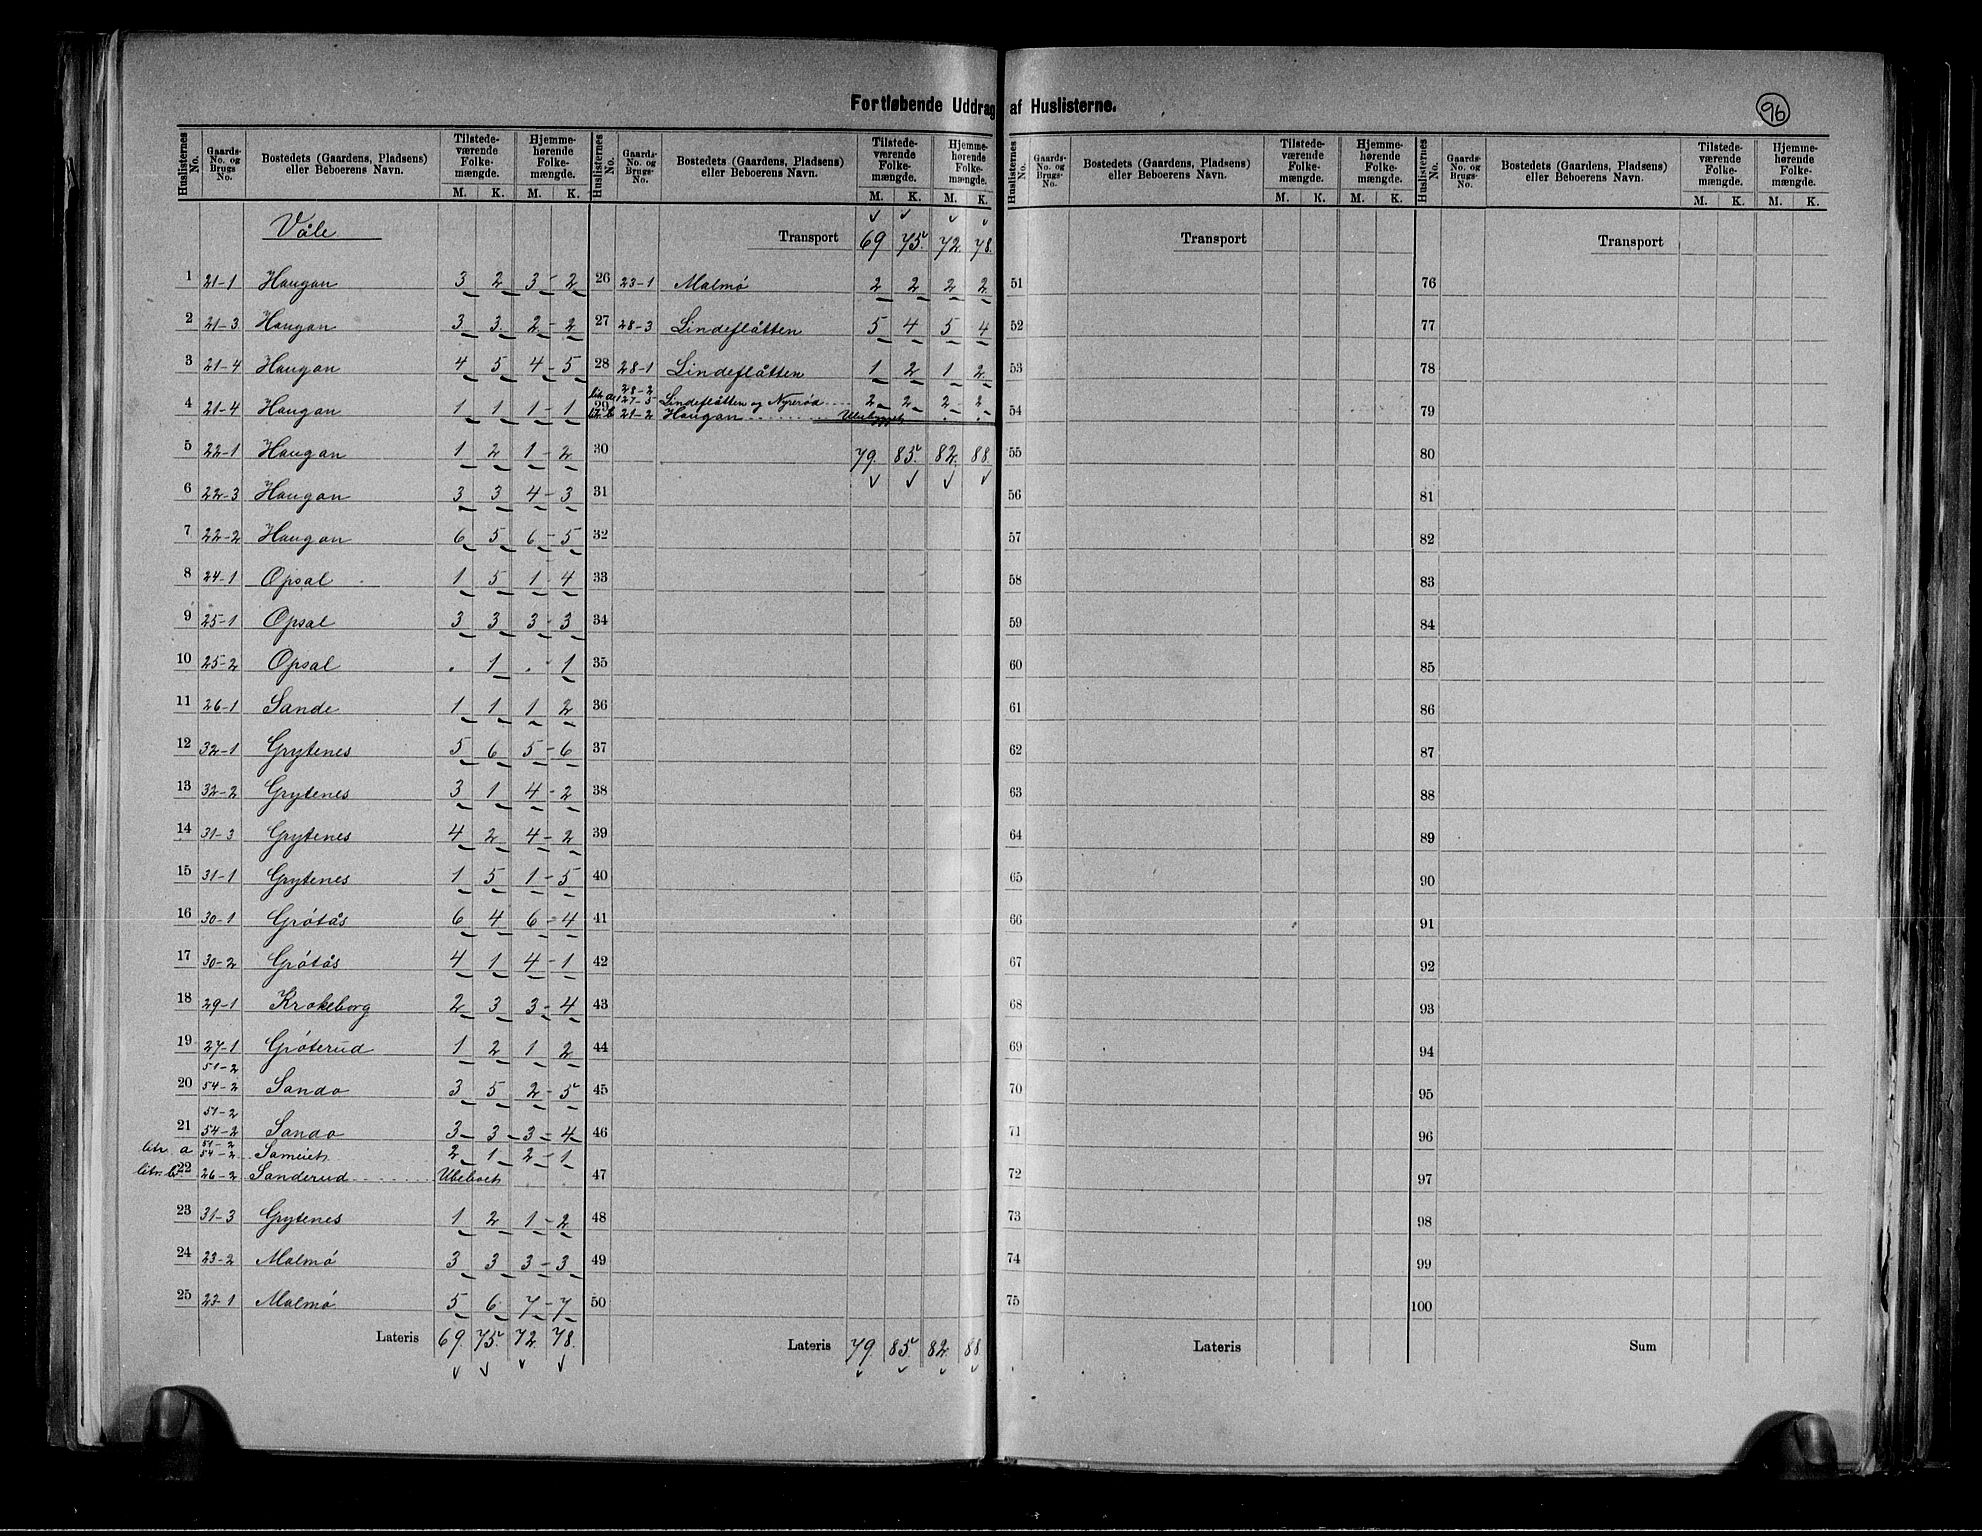 Fortløbende Uddrag af Huslisterne.
96
Huslisternes No. | Gaards-No. og Brugs-No. | Bostedets (Gaardens, Pladsens) eller Beboerens Navn. | Tilstedeværende Folkemængde. M. K. | Hjemmehørende Folkemængde. M. K.
Våle
1 21-1 Haugan 3 2 3-2
2 21-3 Haugan 3 3 2-2
3 21-4 Haugan 4 5 4-5
4 21-4 Haugan 1 1 1-1
5 22-1 Haugan 1 2 1-2
6 22-3 Haugan 3 3 4-3
7 22-2 Haugan 6 5 6-5
8 24-1 Opsal 1 5 1-4
9 25-1 Opsal 3 3 3-3
10 25-2 Opsal . 1 . 1
11 26-1 Sande 1 1 1 2
12 32-1 Grytenes 5 6 5-6
13 32-2 Grytenes 3 1 4-2
14 31-3 Grytenes 4 2 4-2
15 31-1 Grytenes 1 5 1-5
16 30-1 Grøtås 6 4 6-4
17 30-2 Grøtås 4 1 4-1
18 29-1 Krokeborg 2 3 3-4
19 27-1 Grøterud 1 2 1 2
51-2
20 54-2 Sando 3 5 2-5
51-2
21 54-2 Sando 3 3 3 4
litr. a 51-2 54-2 Sameiet 2 1 2-1
litr. b 22 26-2 Sanderud Ubeboet
23 31-3 Grytenes 1 2 1-2
24 23-2 Malmø 3 3 3-3
25 23-1 Malmø 5 6 7-7
Lateris 69. 75. 72. 78.
Huslisternes No. | Gaards-No. og Brugs-No. | Bostedets (Gaardens, Pladsens) eller Beboerens Navn. | Tilstedeværende Folkemængde. M. K. | Hjemmehørende Folkemængde. M. K.
Transport 69 75 72. 78.
26 23-1 Malmø 2 2 2 2
27 28-3 Lindeflåtten 5 4 5 4
28 28-1 Lindeflåtten 1 2 1 2
28-2
29 litr. a 27-5 Lindeflåtten og Nyrerød 2 2 2 2
litr. b 21-2 Haugan Ubebygget
30 79. 85. 82. 88.
31
32
33
34
35
36
37
38
39
40
41
42
43
44
45
46
47
48
49
50
Lateris 79. 85. 82. 88
Huslisternes No. | Gaards-No. og Brugs-No. | Bostedets (Gaardens, Pladsens) eller Beboerens Navn. | Tilstedeværende Folkemængde. M. K. | Hjemmehørende Folkemængde. M. K.
Transport
51
52
53
54
55
56
57
58
59
60
61
62
63
64
65
66
67
68
69
70
71
72
73
74
75
Lateris
Huslisternes No. | Gaards-No. og Brugs-No. | Bostedets (Gaardens, Pladsens) eller Beboerens Navn. | Tilstedeværende Folkemængde. M. K. | Hjemmehørende Folkemængde. M. K.
Transport
76
77
78
79
80
81
82
83
84
85
86
87
88
89
90
91
92
93
94
95
96
97
98
99
100
Sum